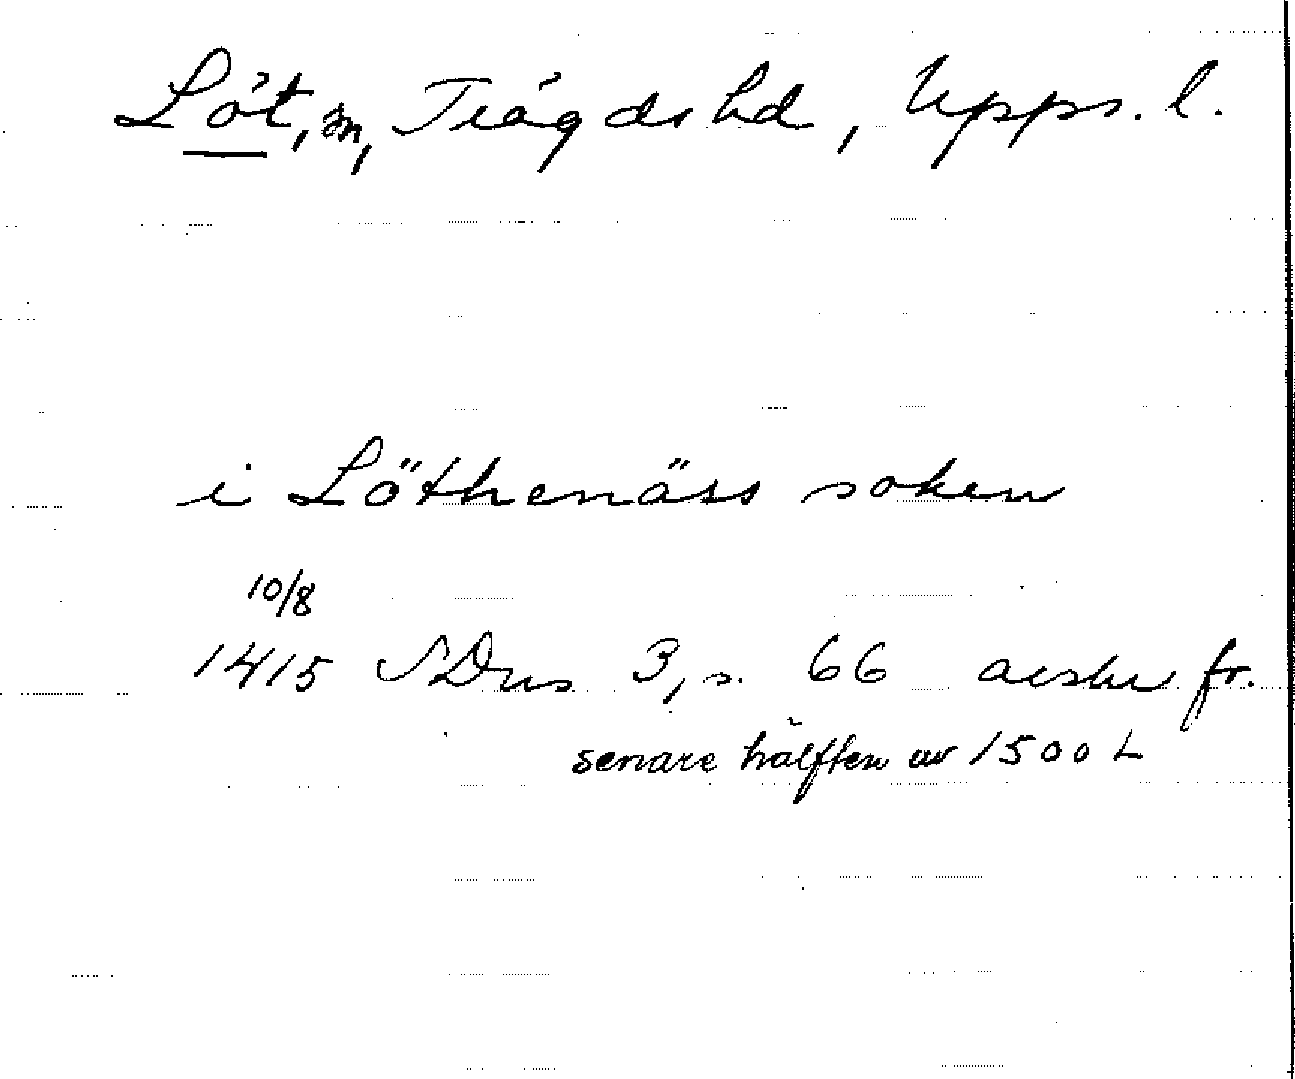 Löt, sn, Trögds hd, Upps. l.
i Löthenäss soken
10/8
1415 SDns 3, s. 66 avskr fr.
senare hälften av 1500 t